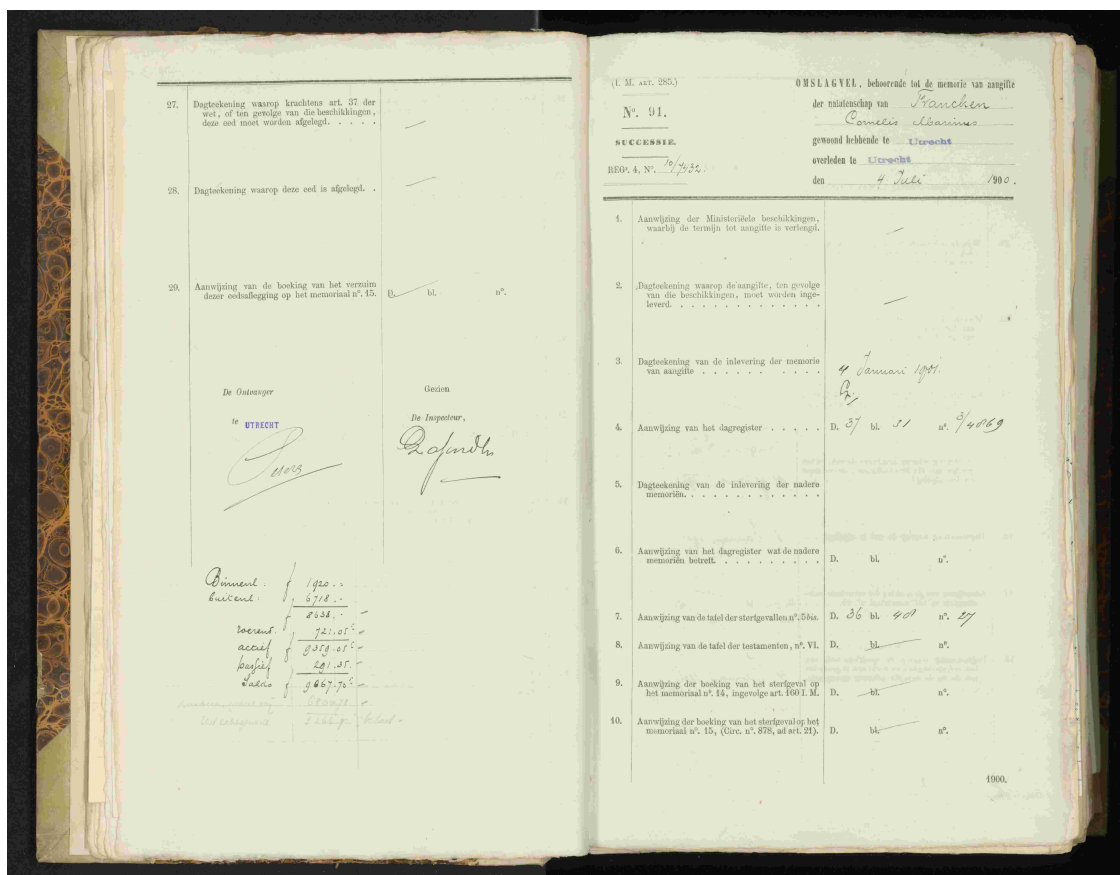 27. Dagteekening waarop krachtens art. 37 der
wet, of ten gevolge van die beschikkingen,
deze eed moet worden afgelegd. . . . . .
28. Dagteekening waarop deze eed is afgelegd. .
29. Aanwijzing van de boeking van het verzuim
dezer eedsaflegging op het memoriaal nº. 15. D. bl. nº.
De Ontvanger
te UTRECHT
Gezien
De Inspecteur,
Binnenl. f 1920.-
buitenl. " 6718.-
f 8638.-
roerend. " 721.05⁵
actief f 9359.05⁵
passief " 291.35
Saldo f 9667.70⁵
(I. M. ART. 285.)
Nº. 91.
SUCCESSIE.
REGr. 4, Nº. 10/7432.
OMSLAGVEL, behoorende tot de memorie van aangifte
der nalatenschap van Francken
Cornelis Marinus
gewoond hebbende te Utrecht
overleden te Utrecht
den 4 Juli 1900.
1. Aanwijzing der Ministeriëele beschikkingen,
waarbij de termijn tot aangifte is verlengd.
2. Dagteekening waarop de aangifte, ten gevolge
van die beschikkingen, moet worden inge-
leverd. . . . . . . . . . . . . .
3. Dagteekening van de inlevering der memorie
van aangifte . . . . . . . . . . 4 Januari 1901.
4. Aanwijzing van het dagregister . . . . . D. 37 bl. 31 nº. 3/4869
5. Dagteekening van de inlevering der nadere
memoriën. . . . . . . . . . . . .
6. Aanwijzing van het dagregister wat de nadere
memoriën betreft. . . . . . . . . . D. bl. nº.
7. Aanwijzing van de tafel der sterfgevallen nº. 5bis. D. 36 bl. 48 nº. 27
8. Aanwijzing van de tafel der testamenten, nº. VI. D. bl. nº.
9. Aanwijzing der boeking van het sterfgeval op
het memoriaal nº. 14, ingevolge art. 160 I. M. D. bl. nº.
10. Aanwijzing der boeking van het sterfgeval op het
memoriaal nº. 15, (Circ. nº. 878, ad art. 21). D. bl. nº.
1900.